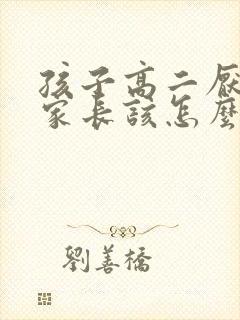 孩子高二厭
家長該怎麼
劉善橋